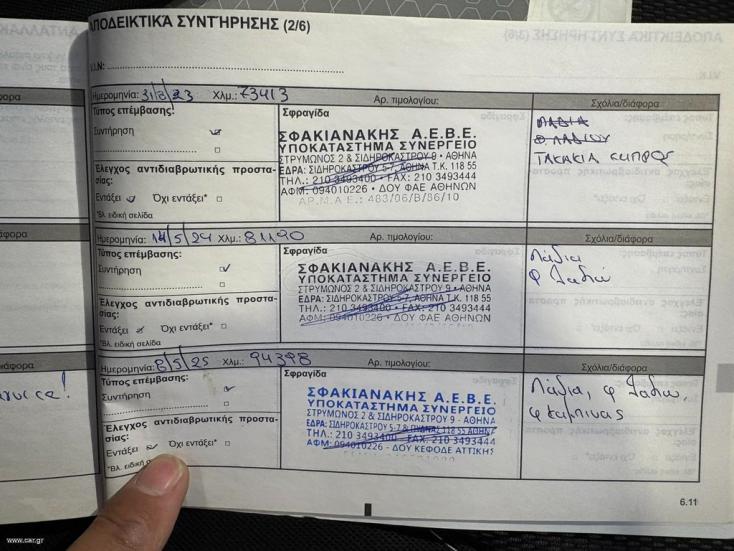 ΑΠΟΔΕΙΚΤΙΚΑ ΣΥΝΤΗΡΗΣΗΣ (2/6)
V.I.N:
Ημερομηνία: 31/3/23 Χλμ.: 73413 Αρ. τιμολογίου: Σχόλια/διάφορα
Τύπος επέμβασης:
Συντήρηση
Έλεγχος αντιδιαβρωτικής προστα-
σίας:
Εντάξει Όχι εντάξει*
*Βλ. ειδική σελίδα
Σφραγίδα
ΣΦΑΚΙΑΝΑΚΗΣ Α.Ε.Β.Ε.
ΥΠΟΚΑΤΑΣΤΗΜΑ ΣΥΝΕΡΓΕΙΟ
ΣΤΡΥΜΩΝΟΣ 2 & ΣΙΔΗΡΟΚΑΣΤΡΟΥ 9 • ΑΘΗΝΑ
ΕΔΡΑ: ΣΙΔΗΡΟΚΑΣΤΡΟΥ 5-7, ΑΘΗΝΑ Τ.Κ. 118 55
ΤΗΛ.: 210 3493400 • FAX: 210 3493444
ΑΦΜ: 094010226 • ΔΟΥ ΦΑΕ ΑΘΗΝΩΝ
ΑΡ.Μ.Α.Ε.: 483/06/Β/86/10
ΛΑΔΙΑ
Φ ΛΑΔΙΟΥ
ΤΑΚΑΚΙΑ ΕΜΠΡΟΣ
Ημερομηνία: 14/5/24 Χλμ.: 81190 Αρ. τιμολογίου: Σχόλια/διάφορα
Τύπος επέμβασης:
Συντήρηση
Έλεγχος αντιδιαβρωτικής προστα-
σίας:
Εντάξει Όχι εντάξει*
*Βλ. ειδική σελίδα
Σφραγίδα
ΣΦΑΚΙΑΝΑΚΗΣ Α.Ε.Β.Ε.
ΥΠΟΚΑΤΑΣΤΗΜΑ ΣΥΝΕΡΓΕΙΟ
ΣΤΡΥΜΩΝΟΣ 2 & ΣΙΔΗΡΟΚΑΣΤΡΟΥ 9 • ΑΘΗΝΑ
ΕΔΡΑ: ΣΙΔΗΡΟΚΑΣΤΡΟΥ 5-7, ΑΘΗΝΑ Τ.Κ. 118 55
ΤΗΛ.: 210 3493400 • FAX: 210 3493444
ΑΦΜ: 094010226 • ΔΟΥ ΦΑΕ ΑΘΗΝΩΝ
Λάδια
φ λαδιού
Ημερομηνία: 8/5/25 Χλμ.: 94398 Αρ. τιμολογίου: Σχόλια/διάφορα
Τύπος επέμβασης:
Συντήρηση
Έλεγχος αντιδιαβρωτικής προστα-
σίας:
Εντάξει Όχι εντάξει*
*Βλ. ειδική
Σφραγίδα
ΣΦΑΚΙΑΝΑΚΗΣ Α.Ε.Β.Ε.
ΥΠΟΚΑΤΑΣΤΗΜΑ ΣΥΝΕΡΓΕΙΟ
ΣΤΡΥΜΩΝΟΣ 2 & ΣΙΔΗΡΟΚΑΣΤΡΟΥ 9 - ΑΘΗΝΑ
ΕΔΡΑ: ΣΙΔΗΡΟΚΑΣΤΡΟΥ 5-7 118 55 ΑΘΗΝΑ
ΤΗΛ.: 210 3493400 - FAX: 210 3493444
ΑΦΜ: 094010226 - ΔΟΥ ΚΕΦΟΔΕ ΑΤΤΙΚΗΣ
Λάδια, φ λαδιού,
φ καμπίνας
6.11
www.car.gr